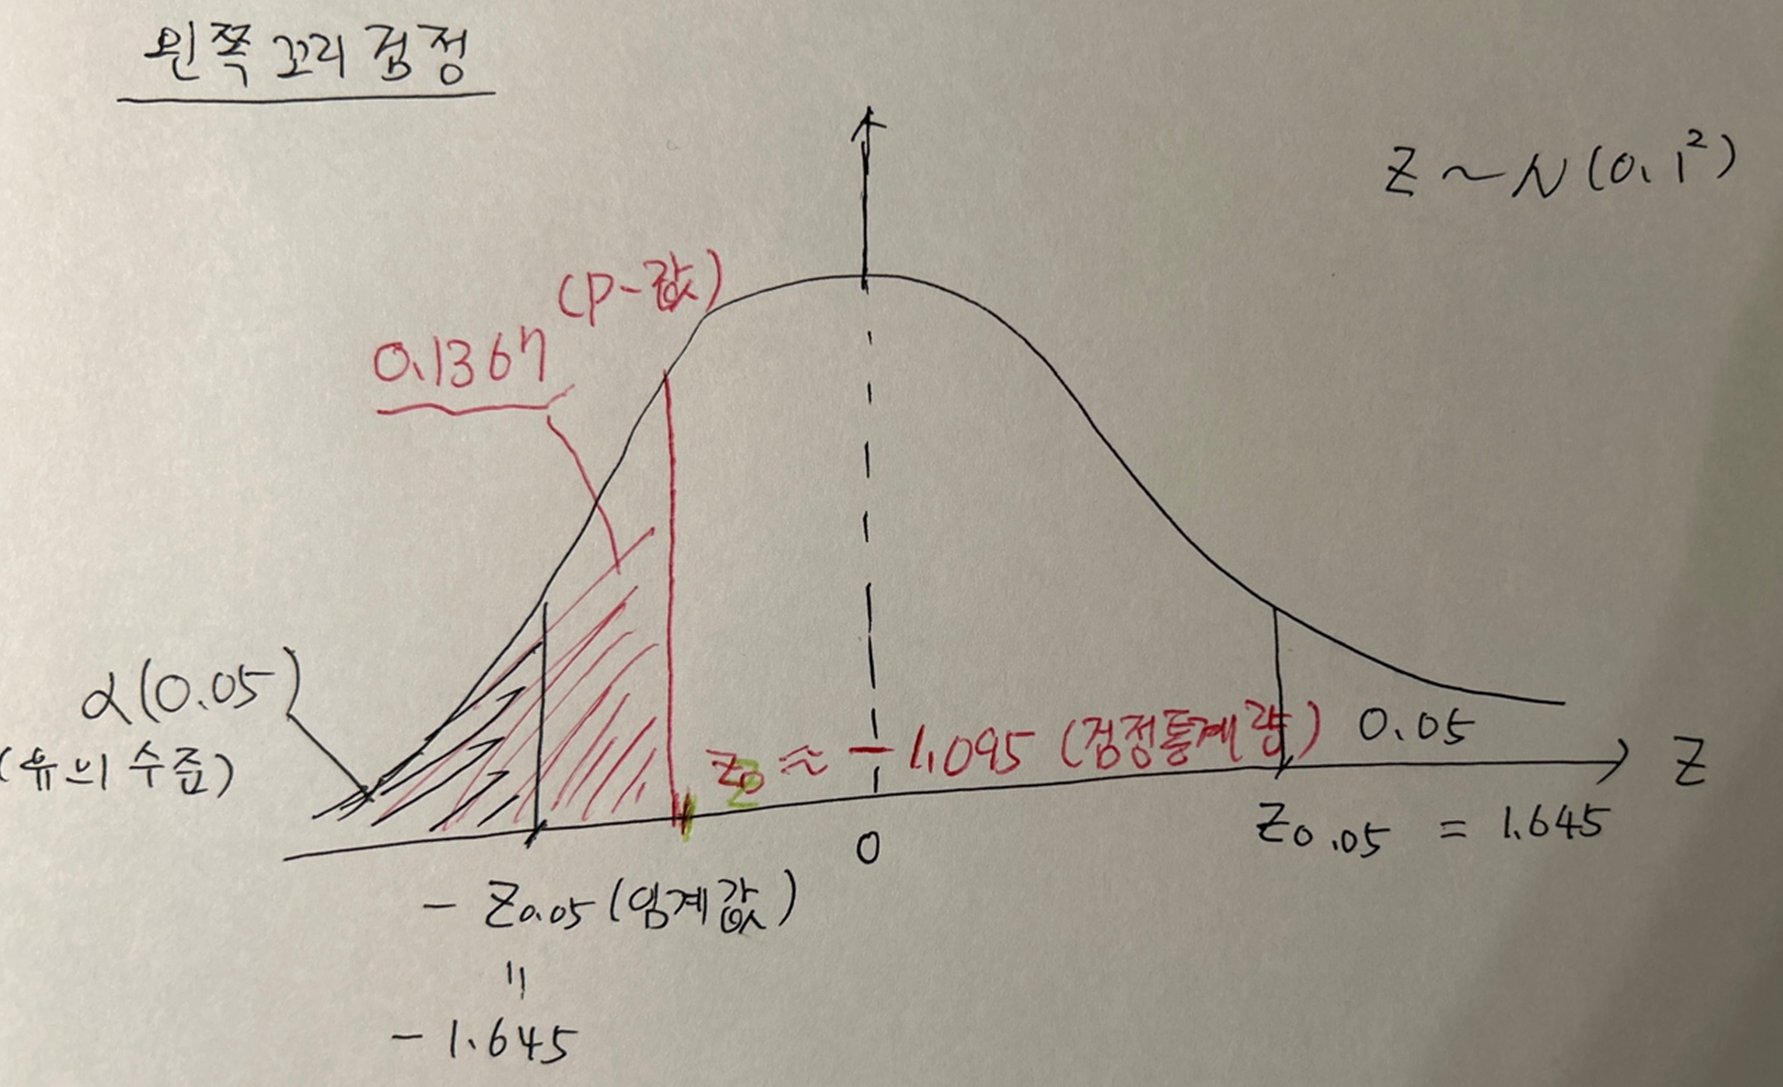 왼쪽 꼬리 검정
Z ~ N(0, 1²)
(P-값)
0.1367
α(0.05)
(유의수준)
z₀ ≈ -1.095 (검정통계량)
0.05
Z
0
Z0.05 = 1.645
- Z0.05 (임계값)
=
- 1.645